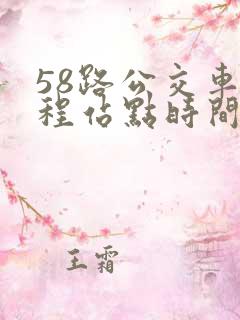 58路公交車
程佔點時間
王霜